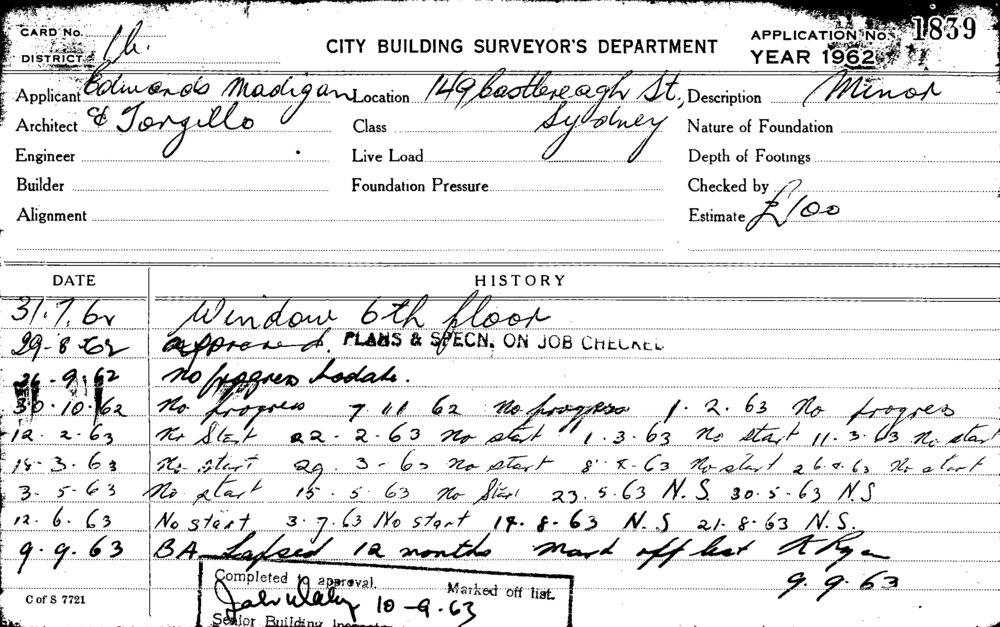 CARD No.
DISTRICT
CITY BUILDING SURVEYOR'S DEPARTMENT
APPLICATION No. 1839
YEAR 1962
Applicant Edwards Madigan Location 149 Castlereagh St., Description Minor
Architect & Torzillo Class Sydney Nature of Foundation
Engineer Live Load Depth of Footings
Builder Foundation Pressure Checked by
Alignment Estimate £100
DATE HISTORY
31.7.62 Window 6th floor
29-8-62 approved. PLANS & SPECN. ON JOB CHECKED
26-9-62 No progress todate.
30.10.62 No progress 7 11 62 No progress 1.2.63 No progress
12.2.63 No Start 22.2.63 no start 1.3.63 No start 11.3.63 No start
.3.63 No start 29.3-63 no start 8-4-63 No start 26.4.63 No start
3.5-63 No start 15.5.63 No Start 23.5.63 N.S. 30.5.63 N.S
12.6.63 No start 3.7.63 No start 14.8.63 N.S 21.8.63 N.S.
9.9.63 BA Lapsed 12 months Mark off list
9.9.63
Completed to approval. Marked off list.
10-9.63
Senior Building
C of S 7721